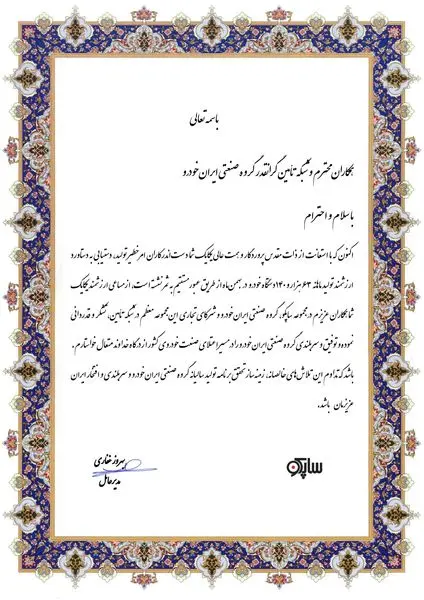 باسمه تعالی
همکاران محترم و شبکه تأمین گرانقدر گروه صنعتی ایران خودرو
با سلام و احترام
اکنون که با استعانت از ذات مقدس پروردگار و همت عالی یکایک شما دست اندرکاران امر خطیر تولید، دستیابی به دستاورد
ارزشمند تولید ماهانه ۶۳ هزار و ۱۴۰ دستگاه خودرو در بهمن ماه از طریق عبور مستقیم به ثمر نشسته است، از مساعی ارزشمند یکایک
شما همکاران عزیزم در مجموعه ساپکو، گروه صنعتی ایران خودرو و شرکای تجاری این مجموعه معظم در شبکه تأمین، تشکر و قدردانی
نموده و توفیق و سربلندی گروه صنعتی ایران خودرو را در مسیر اعتلای صنعت خودروی کشور از درگاه خداوند متعال خواستارم.
باشد که تداوم این تلاش‌های خالصانه، زمینه ساز تحقق برنامه تولید سالیانه گروه صنعتی ایران خودرو و سربلندی و افتخار ایران
عزیزمان باشد.
ساپکو
بهروز غفاری
مدیرعامل